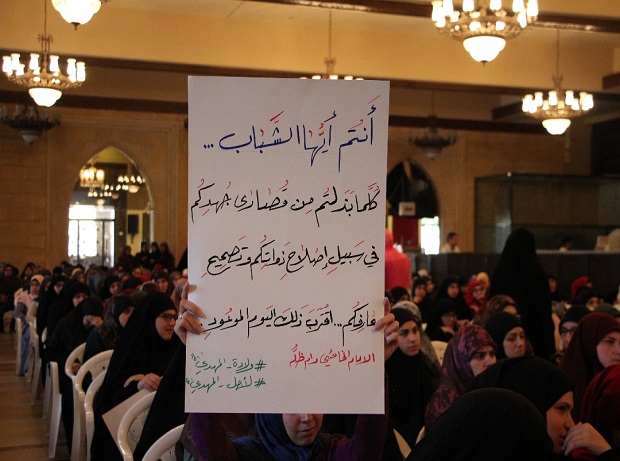 أَنتُم أَيُّها الشَّبَاب ...
كُلَّمَا بَذَلتُم مِن قُصَارى جُهدِكُم
في سَبيلِ إصلاحِ ذَواتِكُم وتَصحيحِ
معارفكُم ... اقتَرَبَ ذَلِكَ اليَوم المَوعُود.
الامام الخامنئي دام ظله
# ولادة - المهدي
# لأجل - المهدي